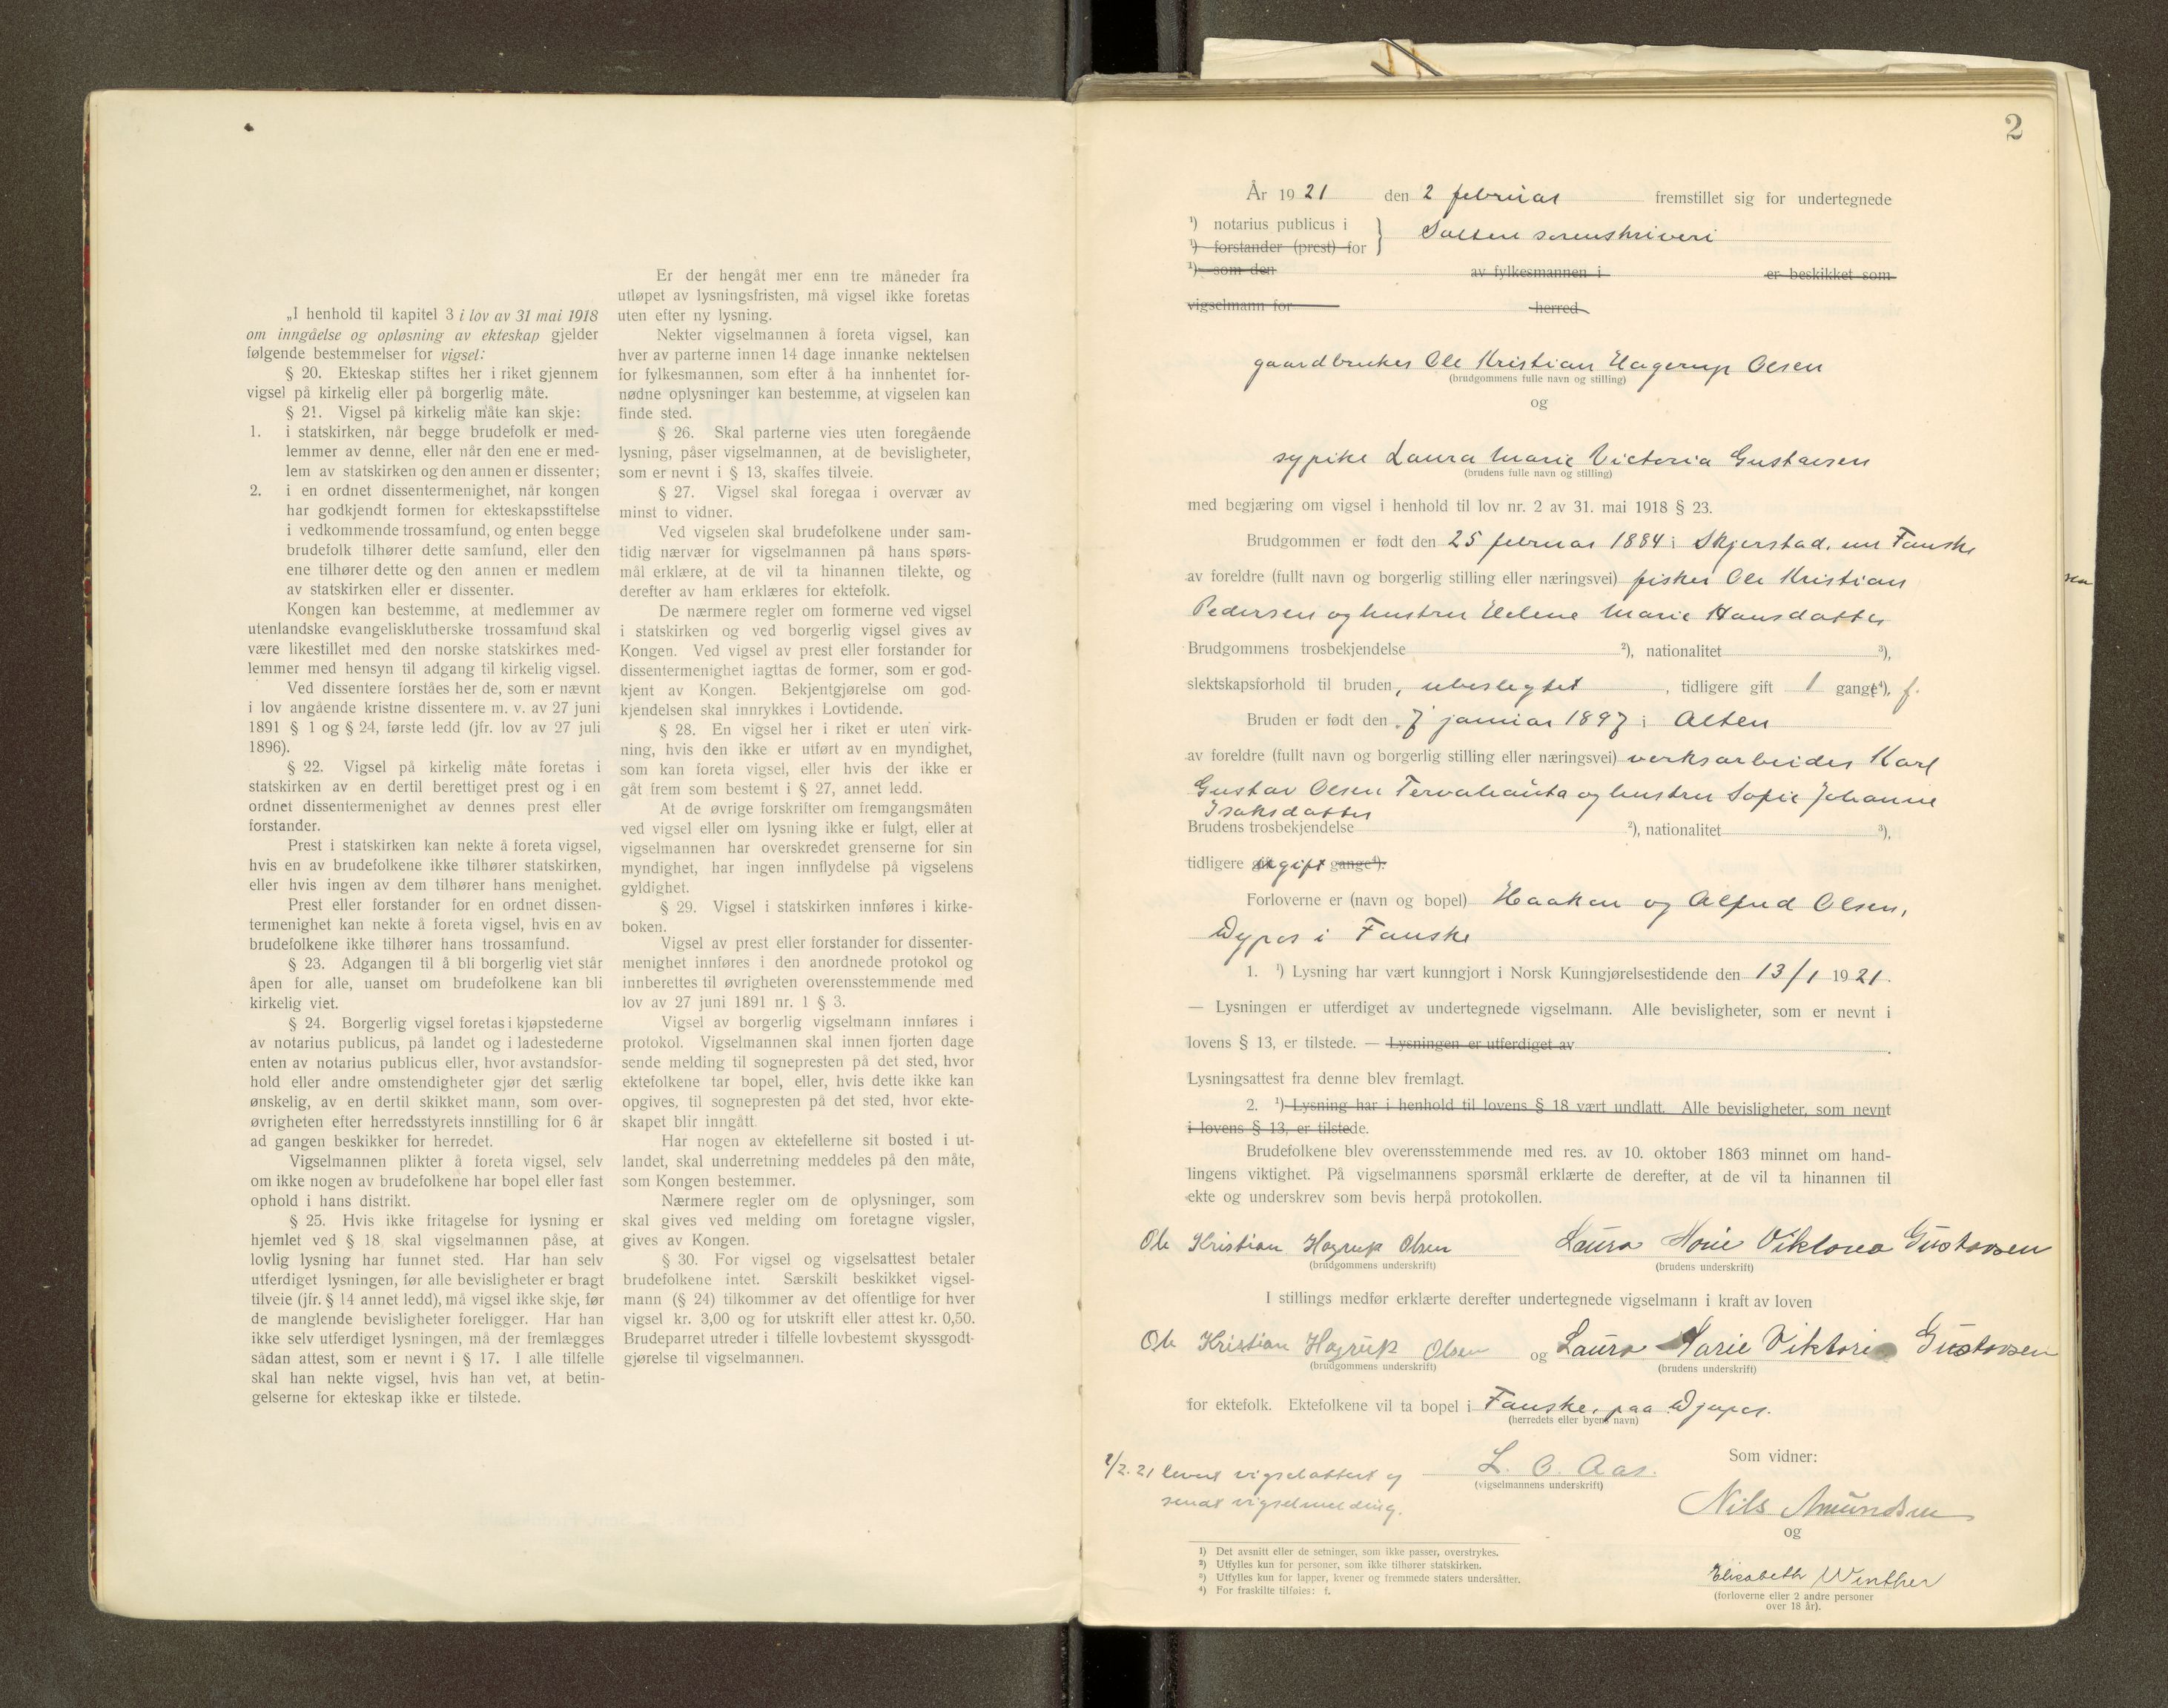 „I henhold til kapitel 3 i lov av 31 mai 1918
om inngåelse og opløsning av ekteskap gjelder
følgende bestemmelser for vigsel:
§ 20. Ekteskap stiftes her i riket gjennem
vigsel på kirkelig eller på borgerlig måte.
§ 21. Vigsel på kirkelig måte kan skje:
1. i statskirken, når begge brudefolk er med-
lemmer av denne, eller når den ene er med-
lem av statskirken og den annen er dissenter;
2. i en ordnet dissentermenighet, når kongen
har godkjendt formen for ekteskapsstiftelse
i vedkommende trossamfund, og enten begge
brudefolk tilhører dette samfund, eller den
ene tilhører dette og den annen er medlem
av statskirken eller er dissenter.
Kongen kan bestemme, at medlemmer av
utenlandske evangelisklutherske trossamfund skal
være likestillet med den norske statskirkes med-
lemmer med hensyn til adgang til kirkelig vigsel.
Ved dissentere forståes her de, som er nævnt
i lov angående kristne dissentere m. v. av 27 juni
1891 § 1 og § 24, første ledd (jfr. lov av 27 juli
1896).
§ 22. Vigsel på kirkelig måte foretas i
statskirken av en dertil berettiget prest og i en
ordnet dissentermenighet av dennes prest eller
forstander.
Prest i statskirken kan nekte å foreta vigsel,
hvis en av brudefolkene ikke tilhører statskirken,
eller hvis ingen av dem tilhører hans menighet.
Prest eller forstander for en ordnet dissen-
termenighet kan nekte å foreta vigsel, hvis en av
brudefolkene ikke tilhører hans trossamfund.
§ 23. Adgangen til å bli borgerlig viet står
åpen for alle, uanset om brudefolkene kan bli
kirkelig viet.
§ 24. Borgerlig vigsel foretas i kjøpstederne
av notarius publicus, på landet og i ladestederne
enten av notarius publicus eller, hvor avstandsfor-
hold eller andre omstendigheter gjør det særlig
ønskelig, av en dertil skikket mann, som over-
øvrigheten efter herredsstyrets innstilling for 6 år
ad gangen beskikker for herredet.
Vigselmannen plikter å foreta vigsel, selv
om ikke nogen av brudefolkene har bopel eller fast
ophold i hans distrikt.
§ 25. Hvis ikke fritagelse for lysning er
hjemlet ved § 18, skal vigselmannen påse, at
lovlig lysning har funnet sted. Har han selv
utferdiget lysningen, før alle bevisligheter er bragt
tilveie (jfr. § 14 annet ledd), må vigsel ikke skje, før
de manglende bevisligheter foreligger. Har han
ikke selv utferdiget lysningen, må der fremlægges
sådan attest, som er nevnt i § 17. I alle tilfelle
skal han nekte vigsel, hvis han vet, at betin-
gelserne for ekteskap ikke er tilstede.
Er der hengåt mer enn tre måneder fra
utløpet av lysningsfristen, må vigsel ikke foretas
uten efter ny lysning.
Nekter vigselmannen å foreta vigsel, kan
hver av parterne innen 14 dage innanke nektelsen
for fylkesmannen, som efter å ha innhentet for-
nødne oplysninger kan bestemme, at vigselen kan
finde sted.
§ 26. Skal parterne vies uten foregående
lysning, påser vigselmannen, at de bevisligheter,
som er nevnt i § 13, skaffes tilveie.
§ 27. Vigsel skal foregaa i overvær av
minst to vidner.
Ved vigselen skal brudefolkene under sam-
tidig nærvær for vigselmannen på hans spørs-
mål erklære, at de vil ta hinannen tilekte, og
derefter av ham erklæres for ektefolk.
De nærmere regler om formerne ved vigsel
i statskirken og ved borgerlig vigsel gives av
Kongen. Ved vigsel av prest eller forstander for
dissentermenighet iagttas de former, som er god-
kjent av Kongen. Bekjentgjørelse om god-
kjendelsen skal innrykkes i Lovtidende.
§ 28. En vigsel her i riket er uten virk-
ning, hvis den ikke er utført av en myndighet,
som kan foreta vigsel, eller hvis der ikke er
gåt frem som bestemt i § 27, annet ledd.
At de øvrige forskrifter om fremgangsmåten
ved vigsel eller om lysning ikke er fulgt, eller at
vigselmannen har overskredet grenserne for sin
myndighet, har ingen innflydelse på vigselens
gyldighet.
§ 29. Vigsel i statskirken innføres i kirke-
boken.
Vigsel av prest eller forstander for dissenter-
menighet innføres i den anordnede protokol og
innberettes til øvrigheten overensstemmende med
lov av 27 juni 1891 nr. 1 § 3.
Vigsel av borgerlig vigselmann innføres i
protokol. Vigselmannen skal innen fjorten dage
sende melding til sognepresten på det sted, hvor
ektefolkene tar bopel, eller, hvis dette ikke kan
opgives, til sognepresten på det sted, hvor ekte-
skapet blir inngått.
Har nogen av ektefellerne sit bosted i ut-
landet, skal underretning meddeles på den måte,
som Kongen bestemmer.
Nærmere regler om de oplysninger, som
skal gives ved melding om foretagne vigsler,
gives av Kongen.
§ 30. For vigsel og vigselsattest betaler
brudefolkene intet. Særskilt beskikket vigsel-
mann (§ 24) tilkommer av det offentlige for hver
vigsel kr. 3,00 og for utskrift eller attest kr. 0,50.
Brudeparret utreder i tilfelle lovbestemt skyssgodt-
gjørelse til vigselmannen.
2
År 1921 den 2 februar fremstillet sig for undertegnede
¹) notarius publicus i
¹) forstander (prest) for } Salten sorenskriveri
¹) som den av fylkesmannen i er beskikket som
vigselmann for herred
gaardbruker Ole Kristian Hagerup Olsen
(brudgommens fulle navn og stilling)
og
sypike Laura Marie Victoria Gustavsen
(brudens fulle navn og stilling)
med begjæring om vigsel i henhold til lov nr. 2 av 31. mai 1918 § 23.
Brudgommen er født den 25 februar 1884 i Skjerstad, nu Fauske
av foreldre (fullt navn og borgerlig stilling eller næringsvei) fisker Ole Kristian
Pedersen og hustru Helene Marie Hansdatter
Brudgommens trosbekjendelse ²), nationalitet ³),
slektskapsforhold til bruden, ubeslegtet, tidligere gift 1 gang(e⁴), f.
Bruden er født den 7 januar 1897 i Alten
av foreldre (fullt navn og borgerlig stilling eller næringsvei) verksarbeider Karl
Gustav Olsen Tervahauta og hustru Sofie Johanne
Isaksdatter
Brudens trosbekjendelse ²), nationalitet ³),
tidligere ugift gange⁴).
Forloverne er (navn og bopel) Haakon og Alfred Olsen,
Dypos i Fauske
1. ¹) Lysning har vært kunngjort i Norsk Kunngjørelsestidende den 13/1 1921.
— Lysningen er utferdiget av undertegnede vigselmann. Alle bevisligheter, som er nevnt i
lovens § 13, er tilstede. — Lysningen er utferdiget av
Lysningsattest fra denne blev fremlagt.
2. ¹) Lysning har i henhold til lovens § 18 vært undlatt. Alle bevisligheter, som nevnt
i lovens § 13, er tilstede.
Brudefolkene blev overensstemmende med res. av 10. oktober 1863 minnet om hand-
lingens viktighet. På vigselmannens spørsmål erklærte de derefter, at de vil ta hinannen til
ekte og underskrev som bevis herpå protokollen.
Ole Kristian Hagrup Olsen Laura Marie Viktoria Gustavsen
(brudgommens underskrift) (brudens underskrift)
I stillings medfør erklærte derefter undertegnede vigselmann i kraft av loven
Ole Kristian Hagrup Olsen og Laura Marie Viktoria Gustavsen
(brudgommens underskrift) (brudens underskrift)
for ektefolk. Ektefolkene vil ta bopel i Fauske, paa Djupos.
(herredets eller byens navn)
2/2. 21 levert vigselattest og
sendt vigselmelding.
L. O. Aas.
(vigselmannens underskrift)
Som vidner:
Nils Amundsen
og
Elisabeth Winther
(forloverne eller 2 andre personer
over 18 år).
¹) Det avsnitt eller de setninger, som ikke passer, overstrykes.
²) Utfylles kun for personer, som ikke tilhører statskirken.
³) Utfylles kun for lapper, kvener og fremmede staters undersåtter.
⁴) For fraskilte tilføies: f.